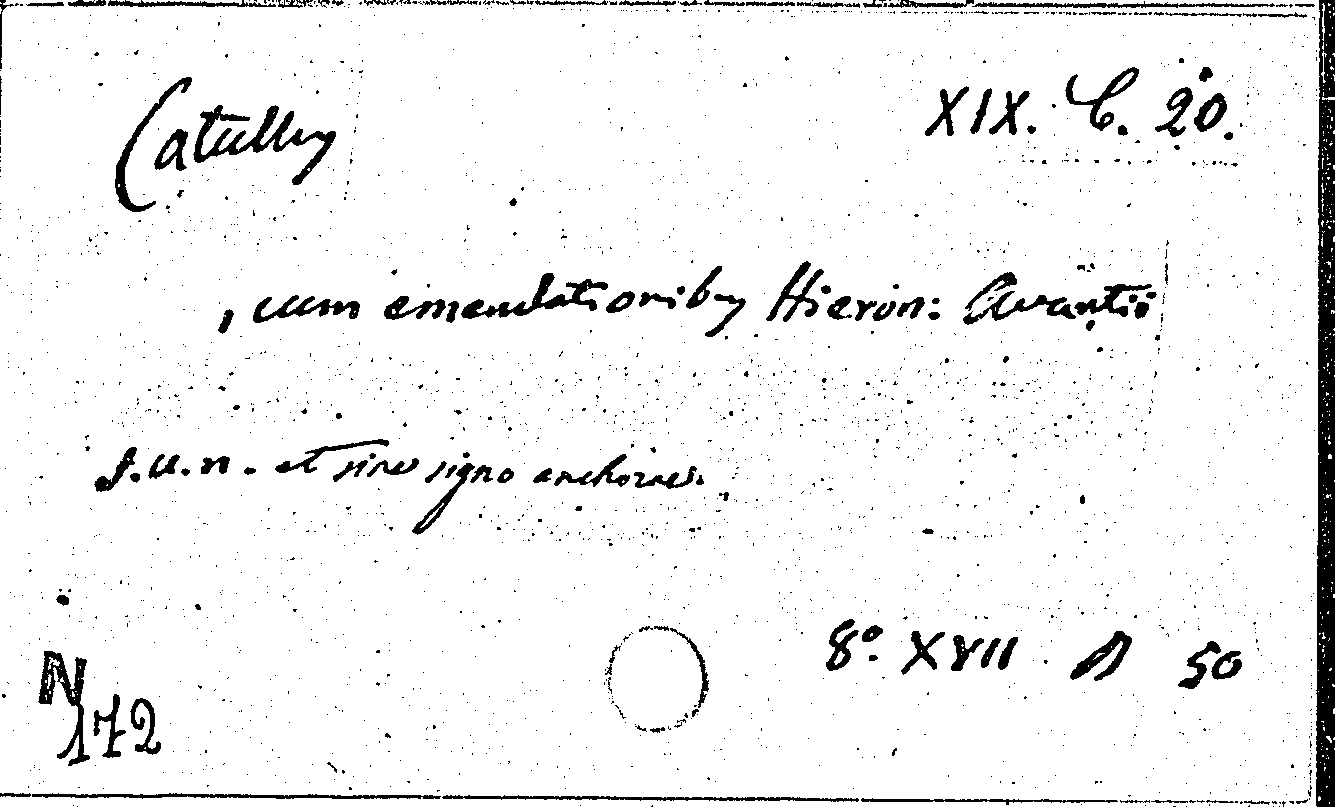 XIX. C. 20.
Catullus
, cum emendationibus Hieron: Avantii
s.a.n. et sine signo anchorae.
8° XVII A 50
N
172